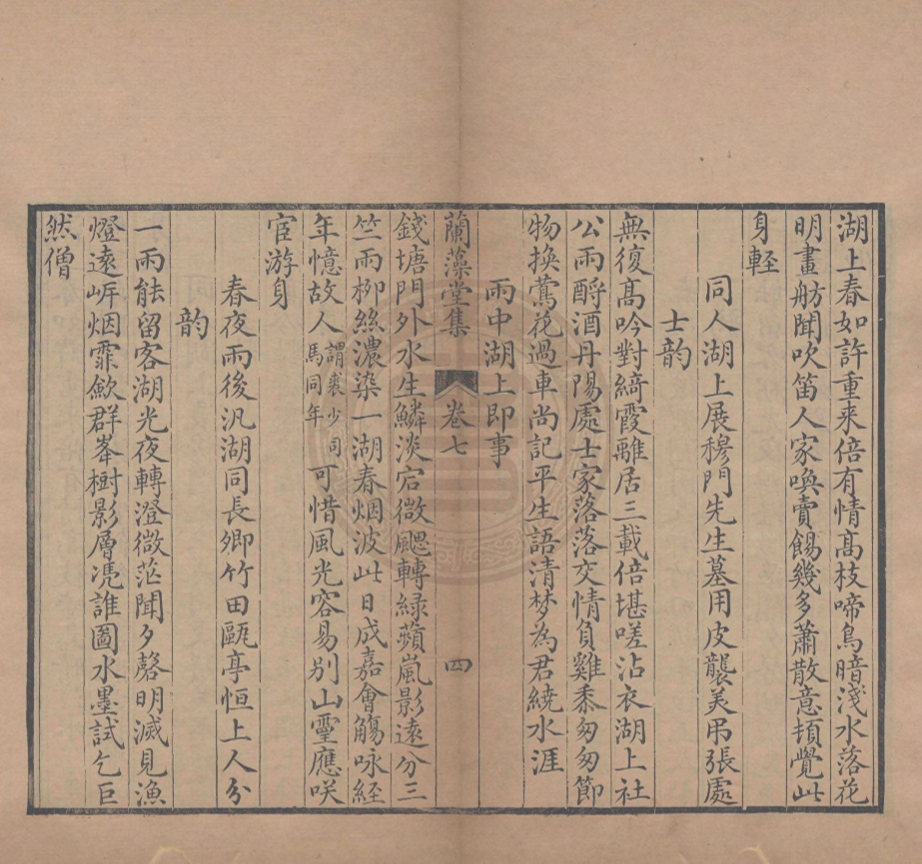 湖上春如許重来倍有情髙枝啼鳥暗淺水落花
明畫舫聞吹笛人家喚賣餳幾多蕭散意頓覺此
身輕
同人湖上展穆門先生墓用皮襲美弔張處
士韵
無復髙吟對綺霞離居三載倍堪嗟沾衣湖上社
公雨酹酒丹陽處士家落落交情負雞黍匆匆節
物換鶯花過車尚記平生語清梦為君繞水涯
雨中湖上即事
蘭藻堂集 卷七 四
錢塘門外水生鱗淡宕微颸轉緑蘋嵐影遠分三
竺雨栁絲濃染一湖春烟波此日成嘉會觴咏經
年憶故人謂裘少司馬同年可惜風光容易别山靈應咲
宦游身
春夜雨後汎湖同長卿竹田甌亭恒上人分
韵
一雨能留客湖光夜轉澄微茫聞夕磬明滅見漁
燈遠㟁烟霏歛群峯樹影層凴誰圖水墨試乞巨
然僧